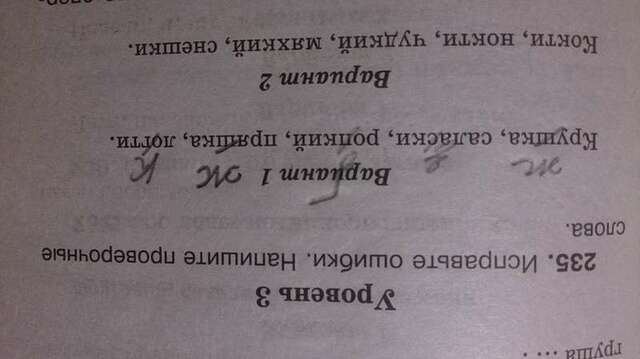 груша ... .
Уровень 3
235. Исправьте ошибки. Напишите проверочные
слова.
Вариант 1
ж з б ж к
Крушка, саласки, ропкий, пряшка, логти.
Вариант 2
Кокти, нокти, чудкий, мяхкий, снешки.